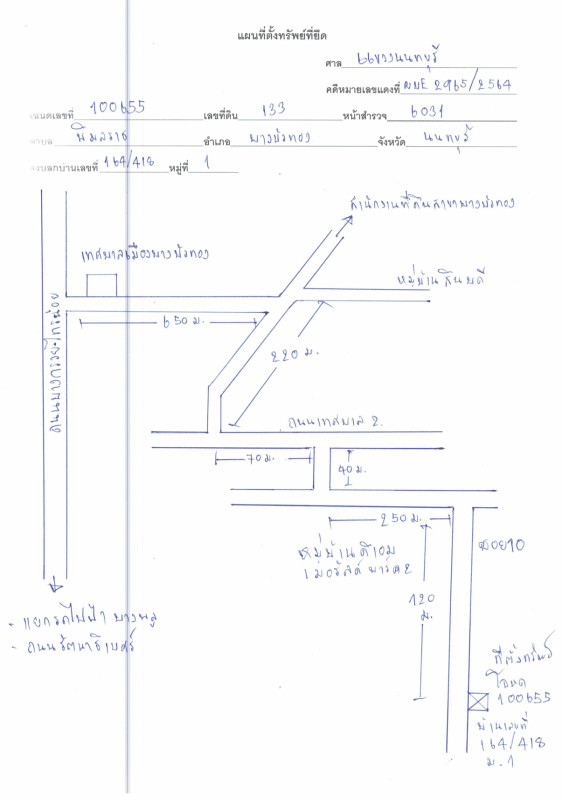 แผนที่ตั้งทรัพย์ที่ยึด
ศาล แขวงนนทบุรี
คดีหมายเลขแดงที่ ผบE 2965/2564
โฉนดเลขที่ 100655 เลขที่ดิน 133 หน้าสำรวจ 6031
ตำบล พิมลราช อำเภอ บางบัวทอง จังหวัด นนทบุรี
สิ่งปลูกบ้านเลขที่ 164/418 หมู่ที่ 1
สำนักงานที่ดินสาขาบางบัวทอง
เทศบาลเมืองบางบัวทอง
หมู่บ้านสินบดี
650 ม.
ถนนบางกรวย-ไทรน้อย
220 ม.
ถนนเทศบาล 2
70 ม.
40 ม.
250 ม.
หมู่บ้านดิเอม
เมอรัลด์ พาร์ค 2
ซอย 10
120
ม.
- แยกรถไฟฟ้า บางพลู
- ถนนรัตนาธิเบศร์
ที่ตั้งทรัพย์
โฉนด
100655
บ้านเลขที่
164/418
ม.1